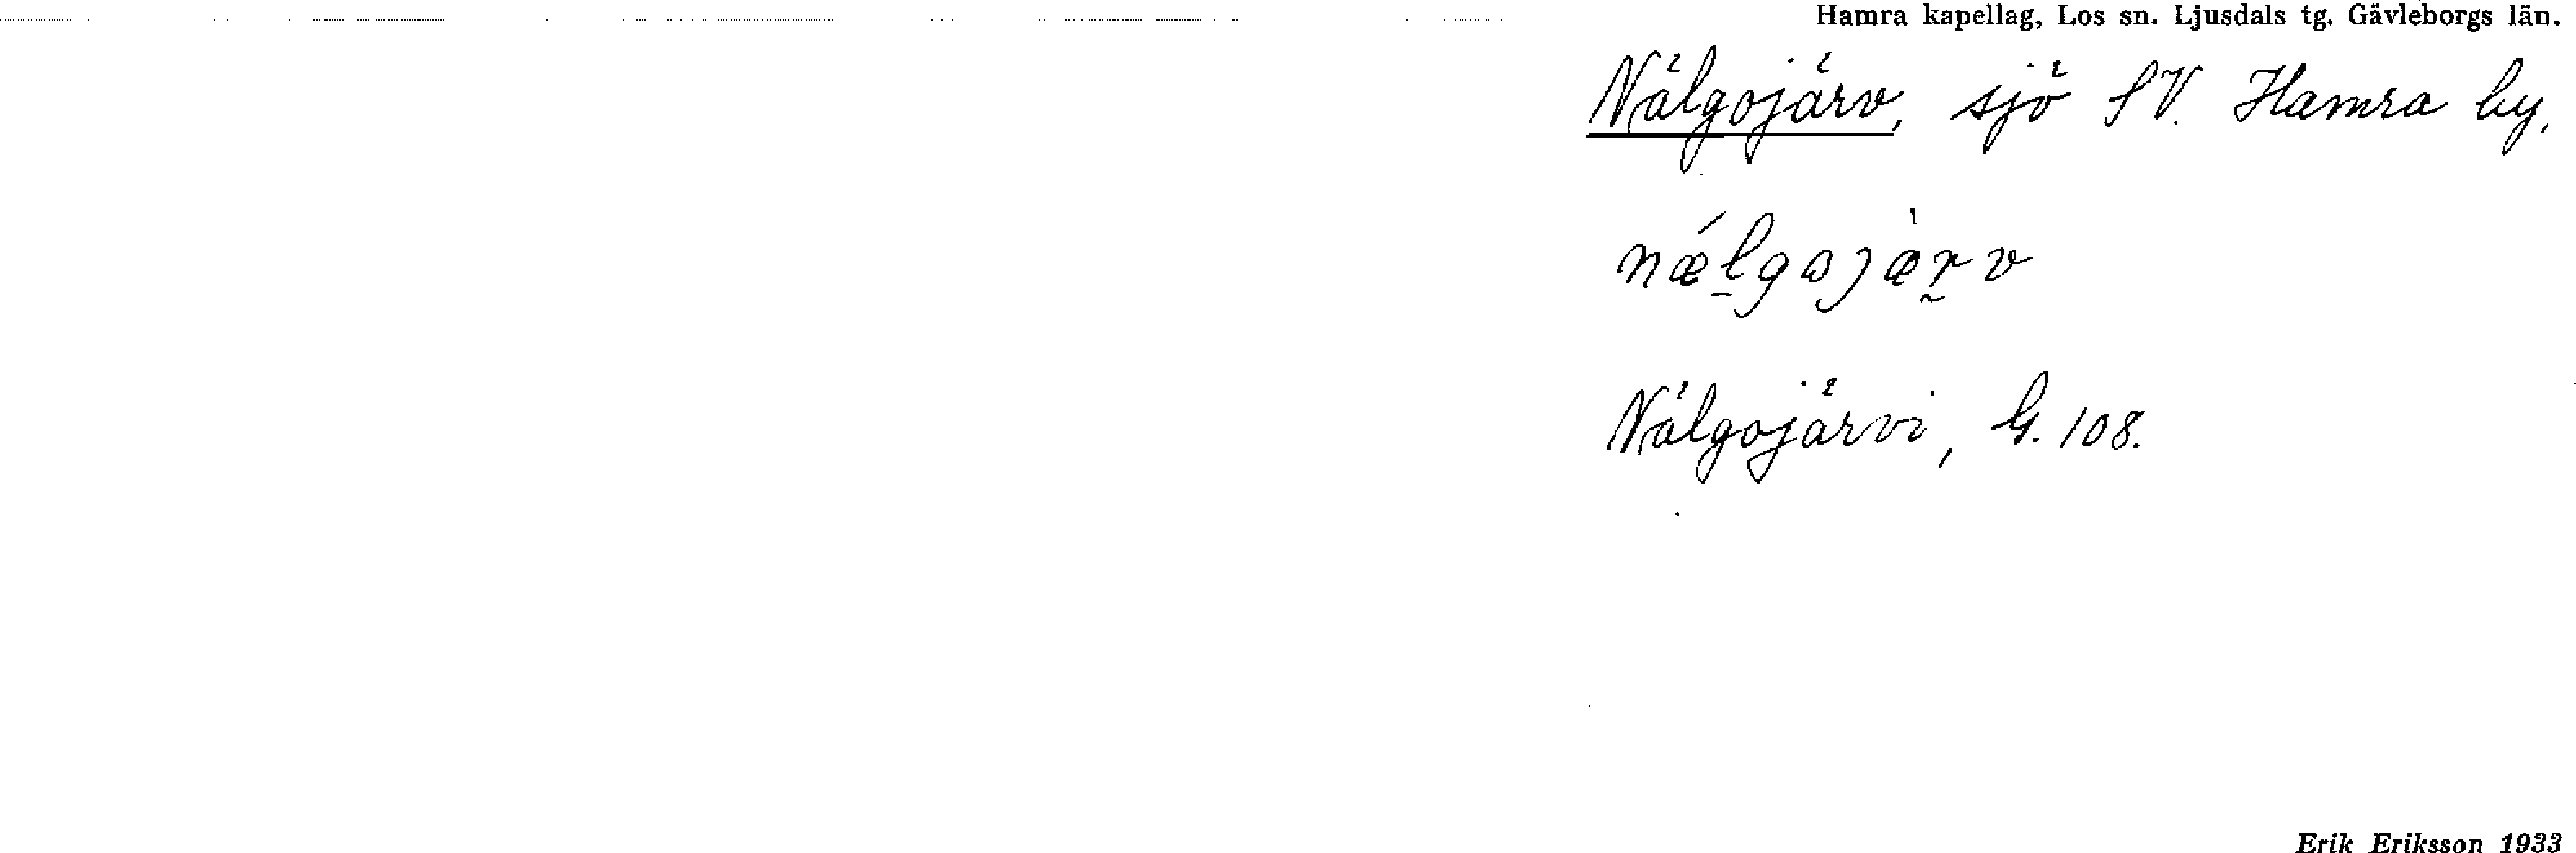 Hamra kapellag, Los sn. Ljusdals tg. Gävleborgs län.
Nälgojärv, sjö SV. Hamra by.
nǽḻgojæ̀r̰v
Nälgojärvi, G. 108.
Erik Eriksson 1933